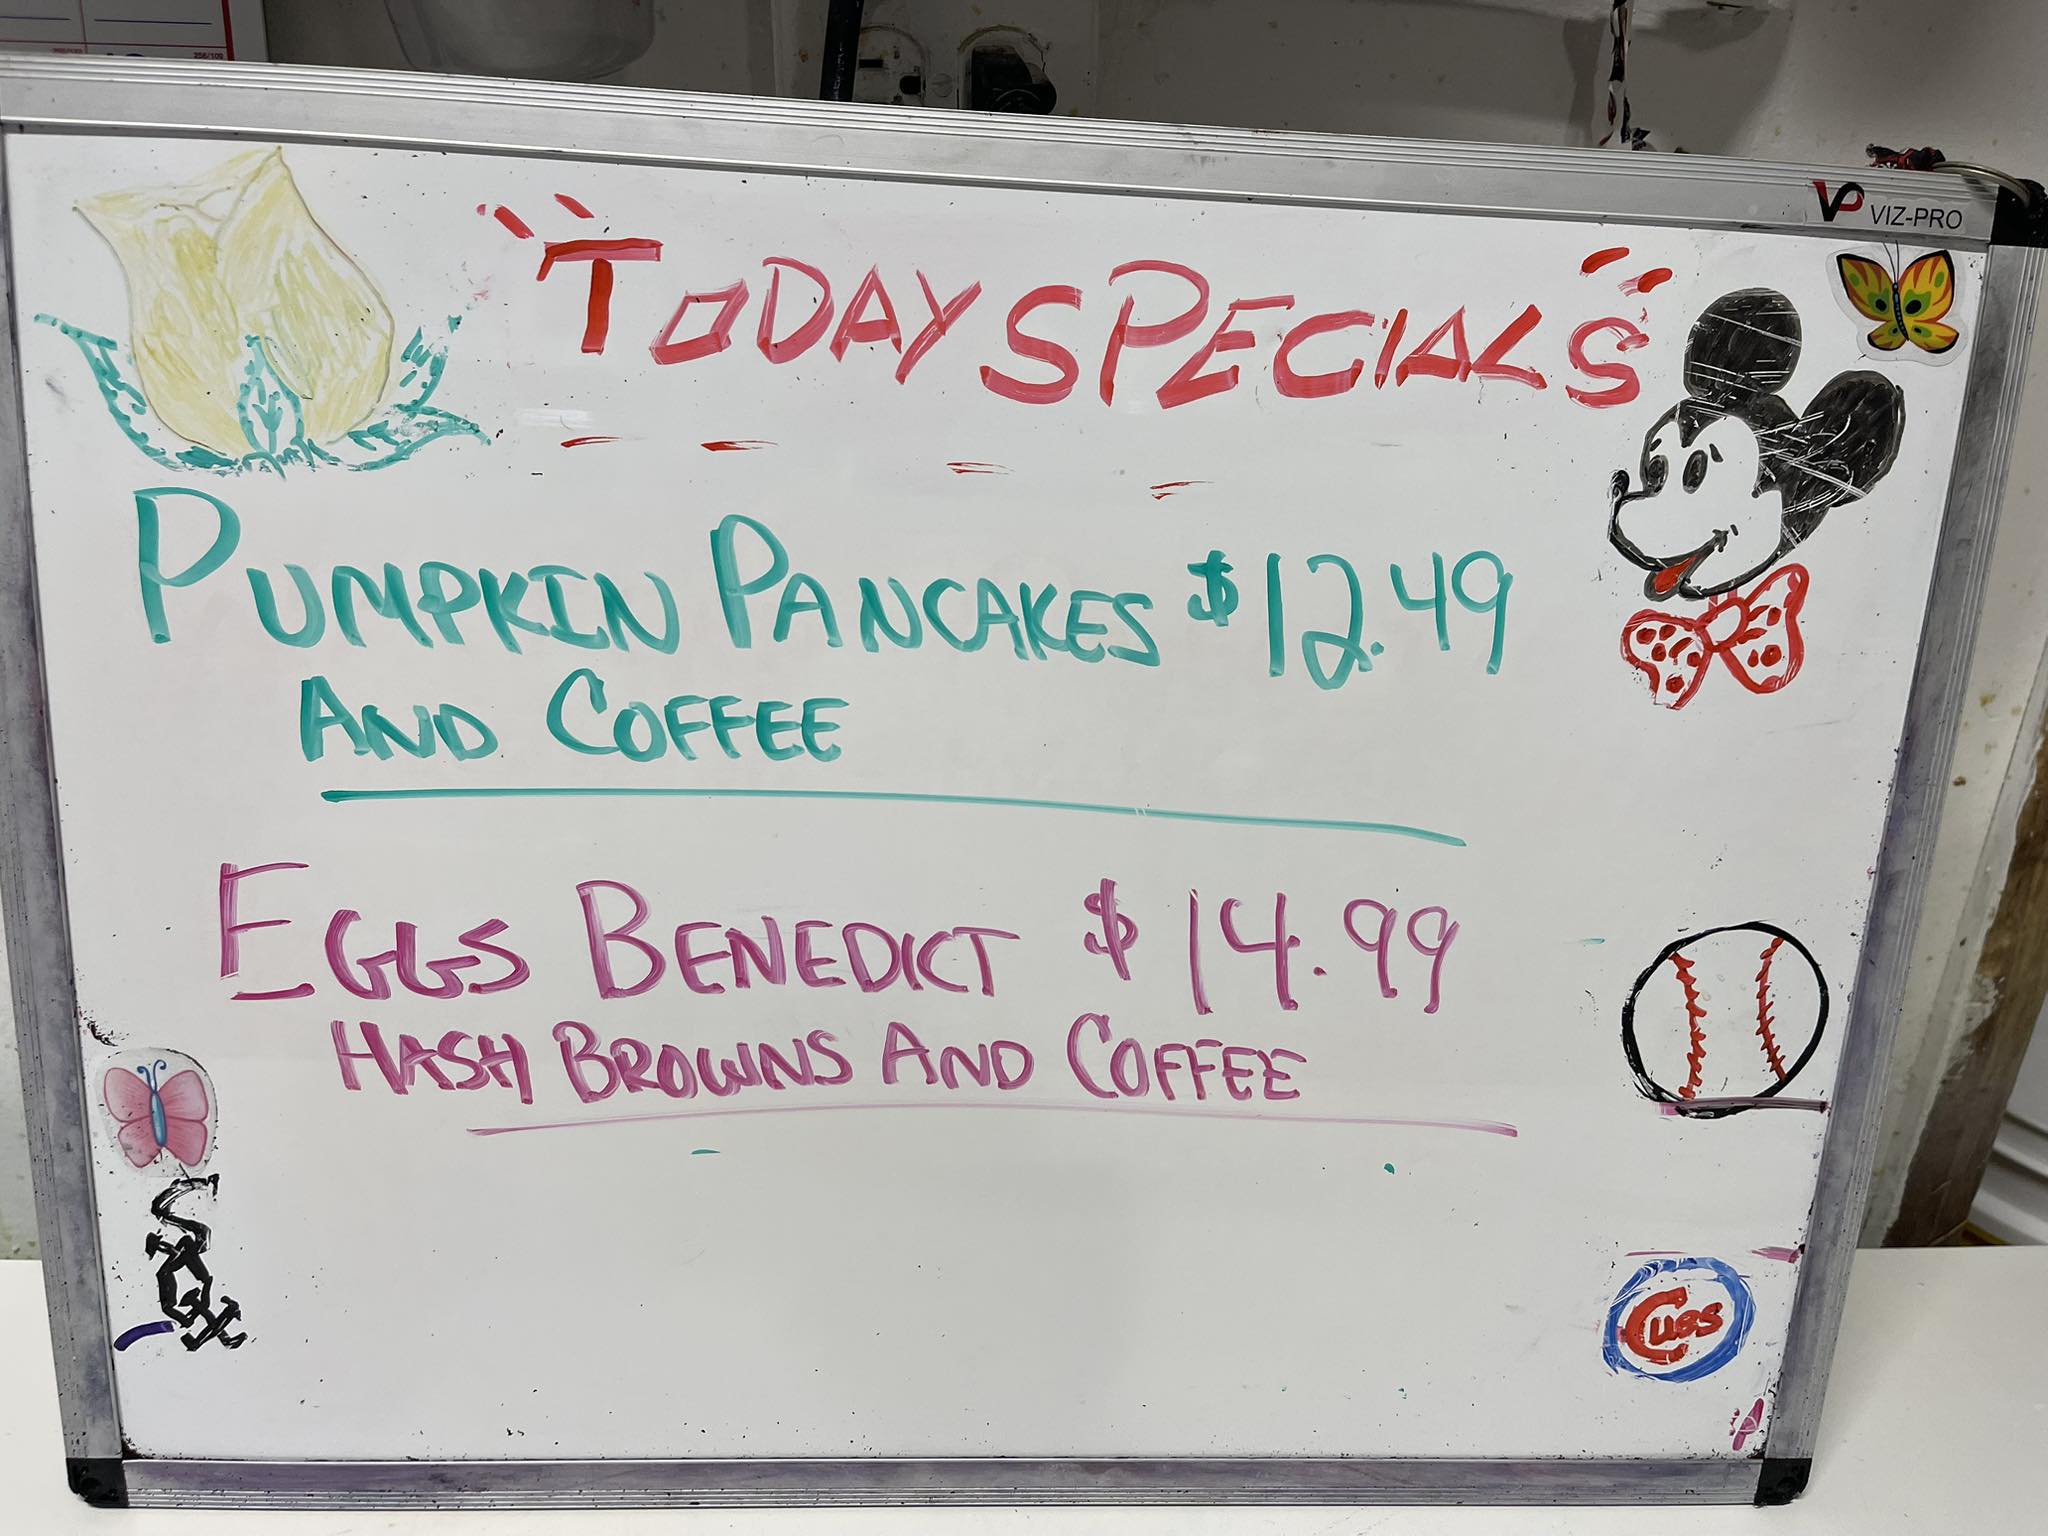 256/109
VP VIZ-PRO
"TODAY SPECIALS"
PUMPKIN PANCAKES $12.49
AND COFFEE
EGGS BENEDICT $14.99
HASH BROWNS AND COFFEE
SOX
CUBS